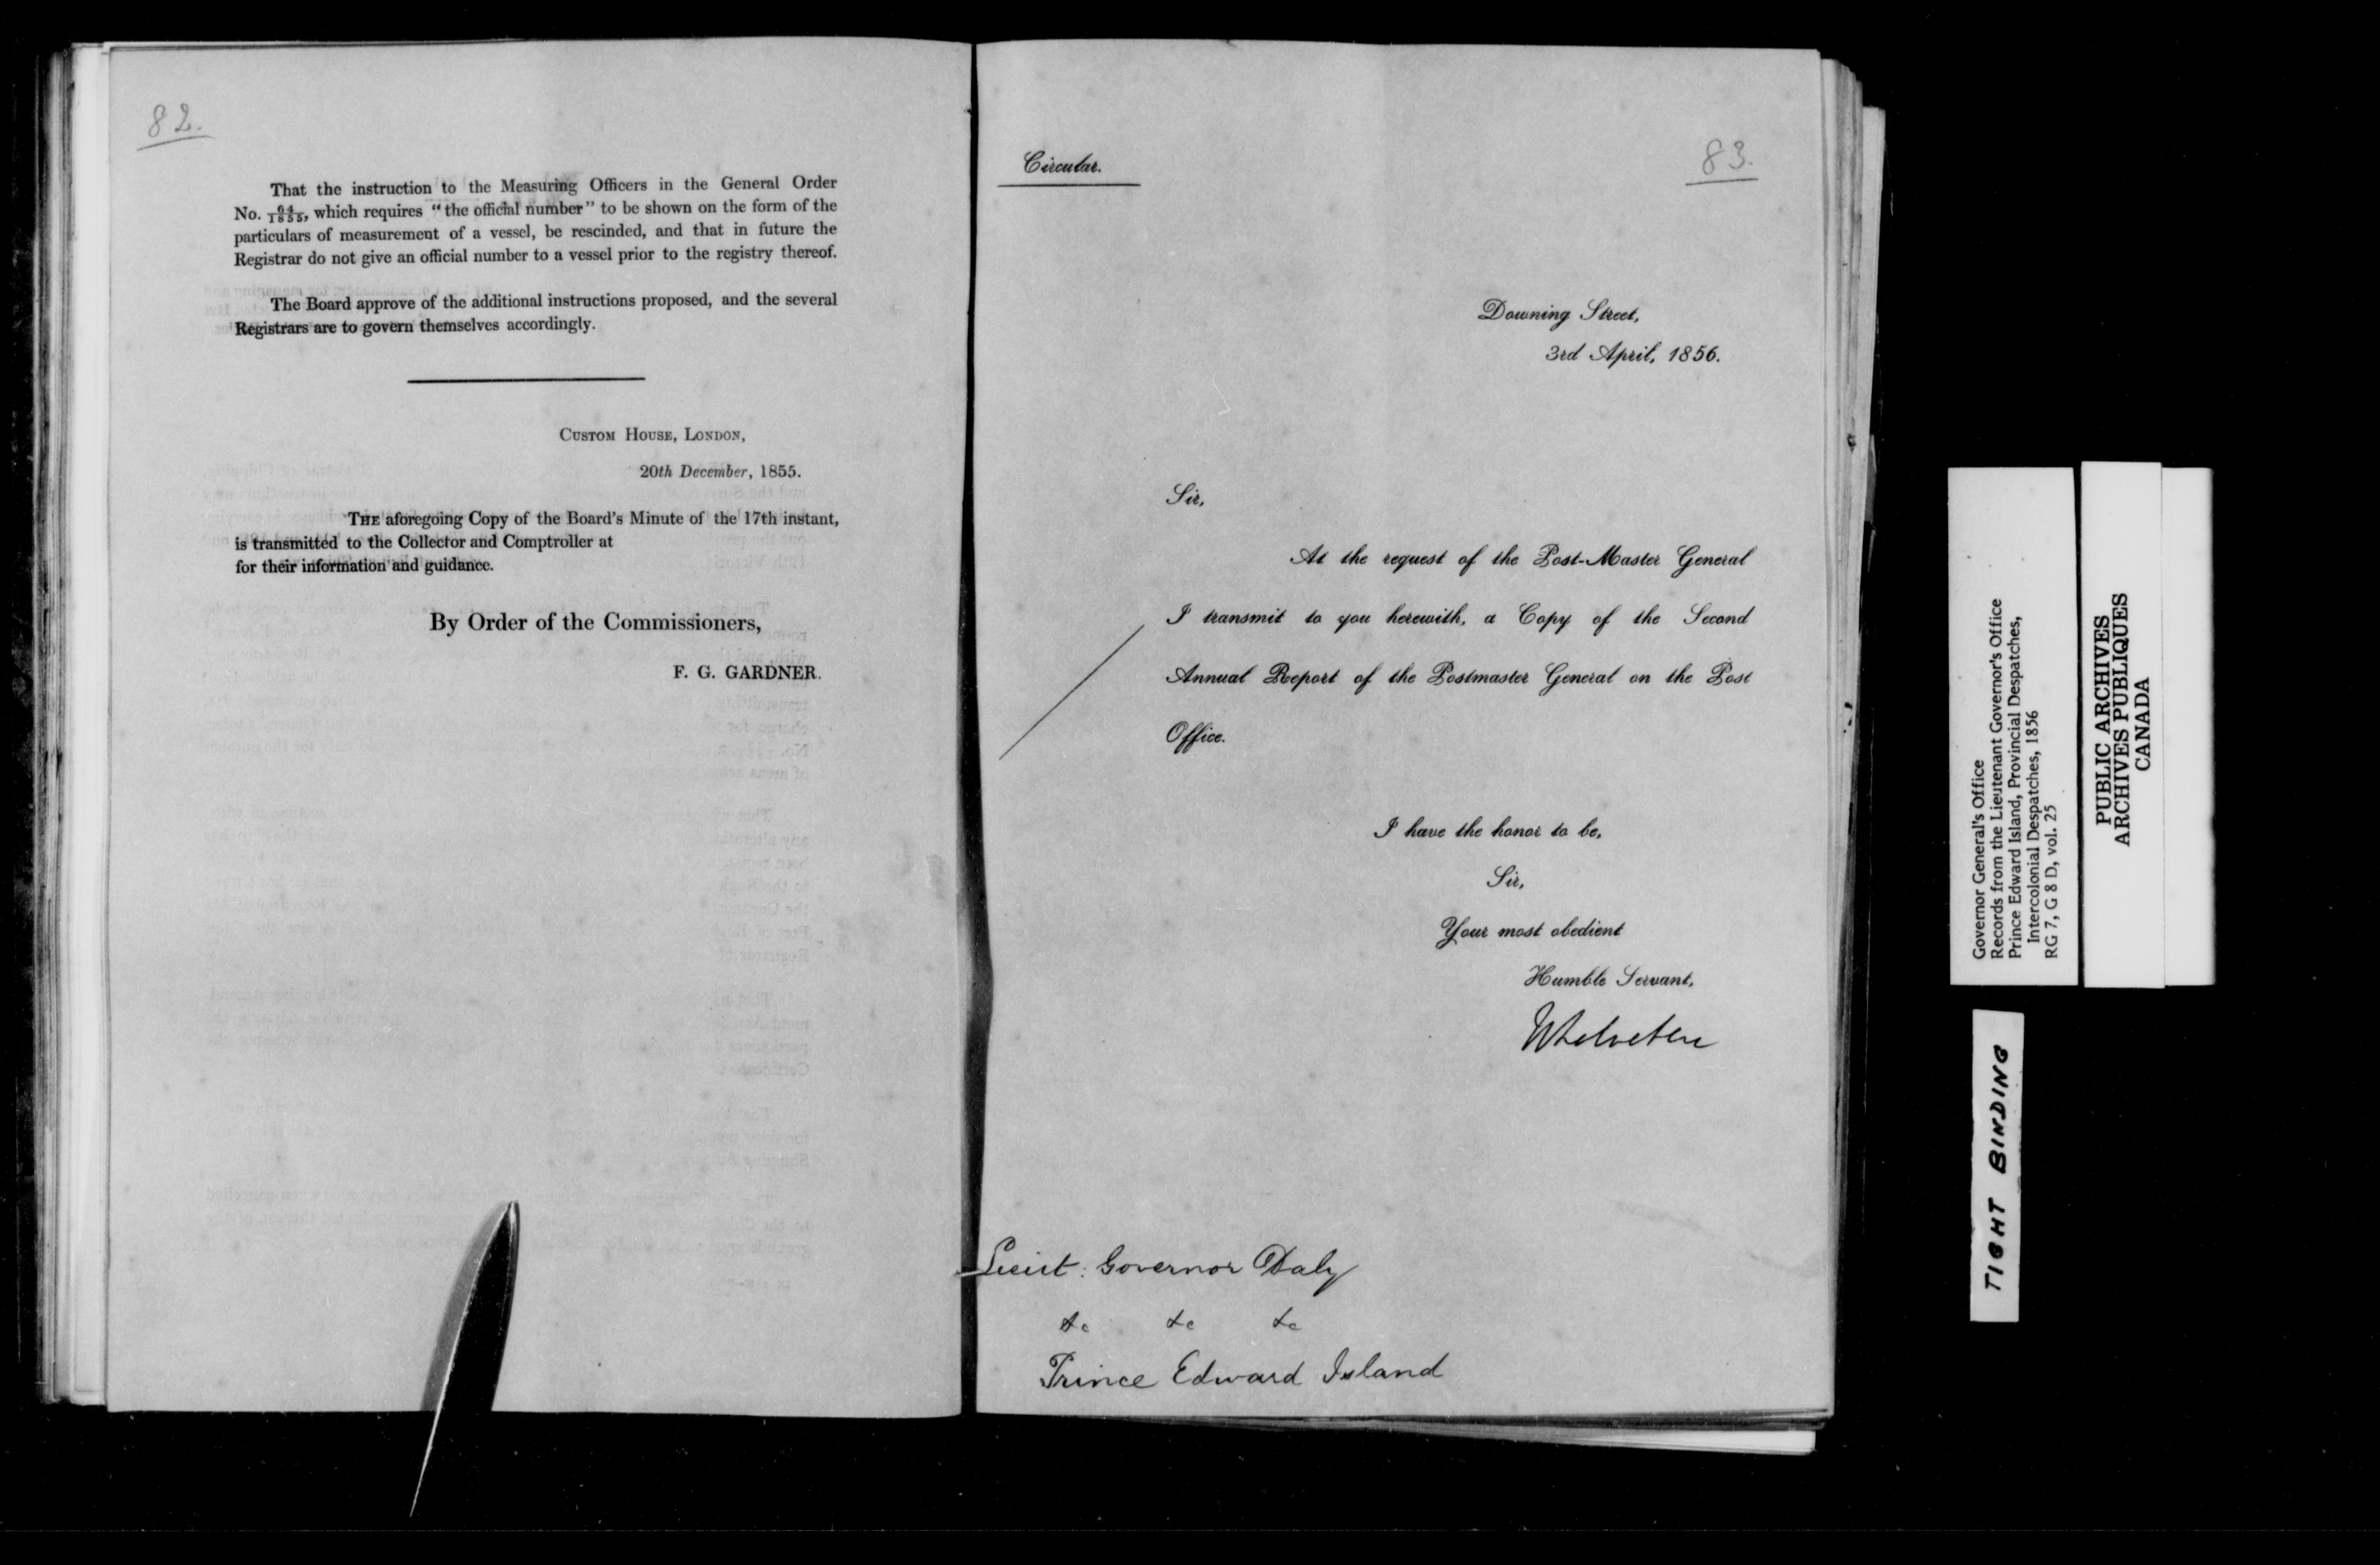 82.
That the instruction to the Measuring Officers in the General Order
No. 64/1855, which requires "the official number" to be shown on the form of the
particulars of measurement of a vessel, be rescinded, and that in future the
Registrar do not give an official number to a vessel prior to the registry thereof.
The Board approve of the additional instructions proposed, and the several
Registrars are to govern themselves accordingly.
CUSTOM HOUSE, LONDON,
20th December, 1855.
THE aforegoing Copy of the Board's Minute of the 17th instant,
is transmitted to the Collector and Comptroller at
for their information and guidance.
By Order of the Commissioners,
F. G. GARDNER.
Circular.
83.
Downing Street,
3rd April, 1856.
Sir,
At the request of the Post-Master General
I transmit to you herewith, a Copy of the Second
Annual Report of the Postmaster General on the Post
Office.
I have the honor to be,
Sir,
Your most obedient
Humble Servant,
Lieut: Governor Daly
&c &c &c
Prince Edward Island
Governor General's Office
Records from the Lieutenant Governor's Office
Prince Edward Island, Provincial Despatches,
Intercolonial Despatches, 1856
RG 7, G 8 D, vol. 25
PUBLIC ARCHIVES
ARCHIVES PUBLIQUES
CANADA
TIGHT BINDING